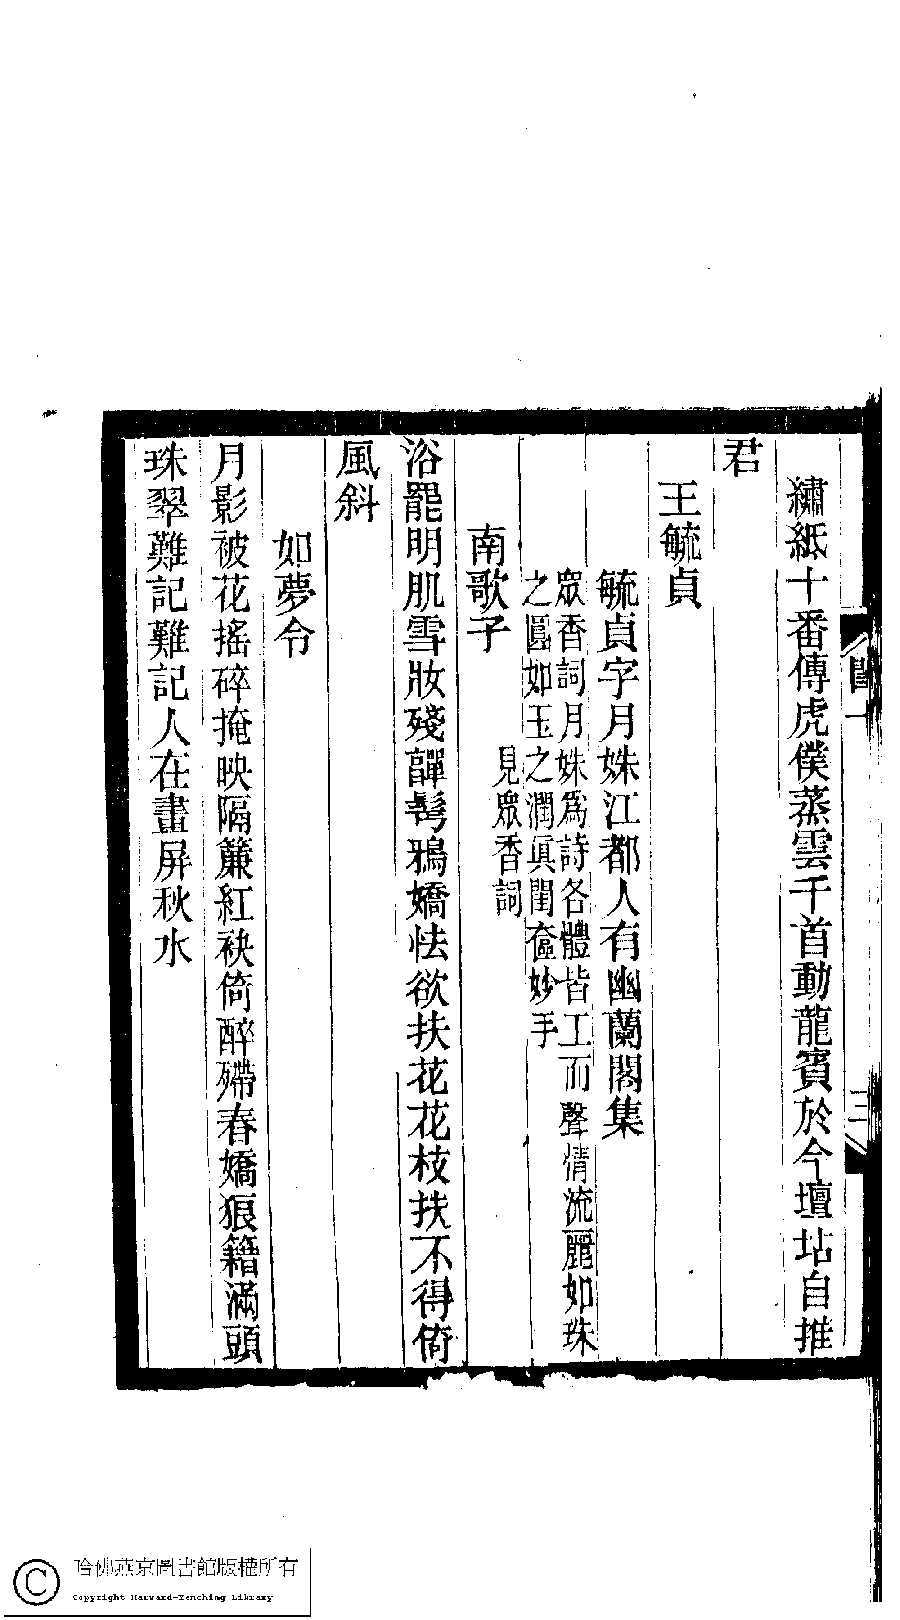 繡紙十番傳虎僕蒸雲千首動龍賓於今壇坫自推
君
王毓貞
毓貞字月姝江都人有幽蘭閣集
眾香詞月姝爲詩各體皆工而聲情流麗如珠
之圓如玉之潤眞閨奩妙手
見眾香詞
南歌子
浴罷明肌雪妝殘嚲髩鴉嬌怯欲扶花花枝扶不得倚
風斜
如夢令
月影被花搖碎掩映隔簾紅袂倚醉殢春嬌狼籍滿頭
珠翠難記難記人在畫屏秋水
閨一
三
哈佛燕京圖書館版權所有
Copyright Harvard-Yenching Library